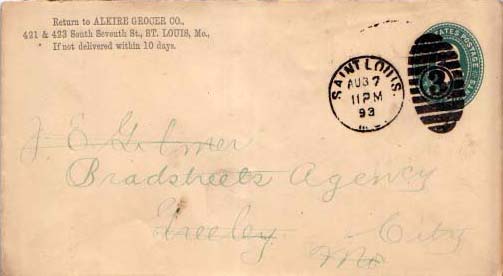 Return to ALKIRE GROCER CO.,
421 & 423 South Seventh St., ST. LOUIS, Mo.,
If not delivered within 10 days.
STATES POSTAGE
SAINT LOUIS.
AUG 7
11 PM
93
3
J. E. Gilmer
Bradstreets Agency
Greeley City
Mo